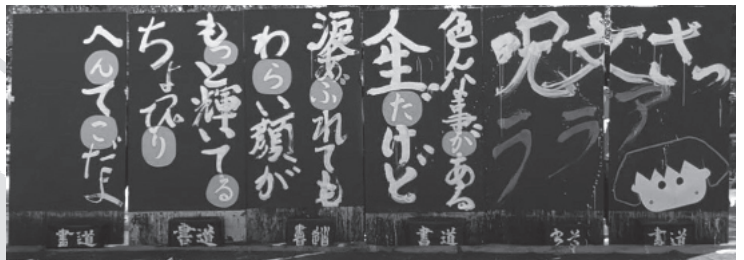 呪文
アララ
色んな事がある
人生だけど
涙あふれても
わらい顔が
もっと輝いてる
ちょびり
へんてこだよ
書道
書道
書道
書道
書道